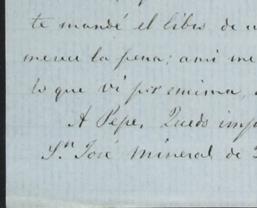 te mandé el libro de
merece la pena; a mi me
lo que vi por encima,
A Pepe. Quedo
Sn. José Mineral de